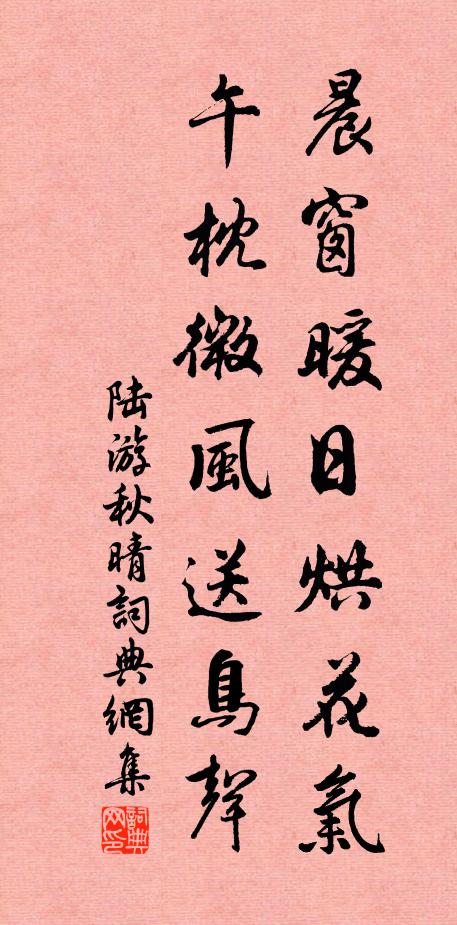 晨窗暖日烘花氣
午枕微風送鳥聲
陆游秋晴詞典網集
詞典网印